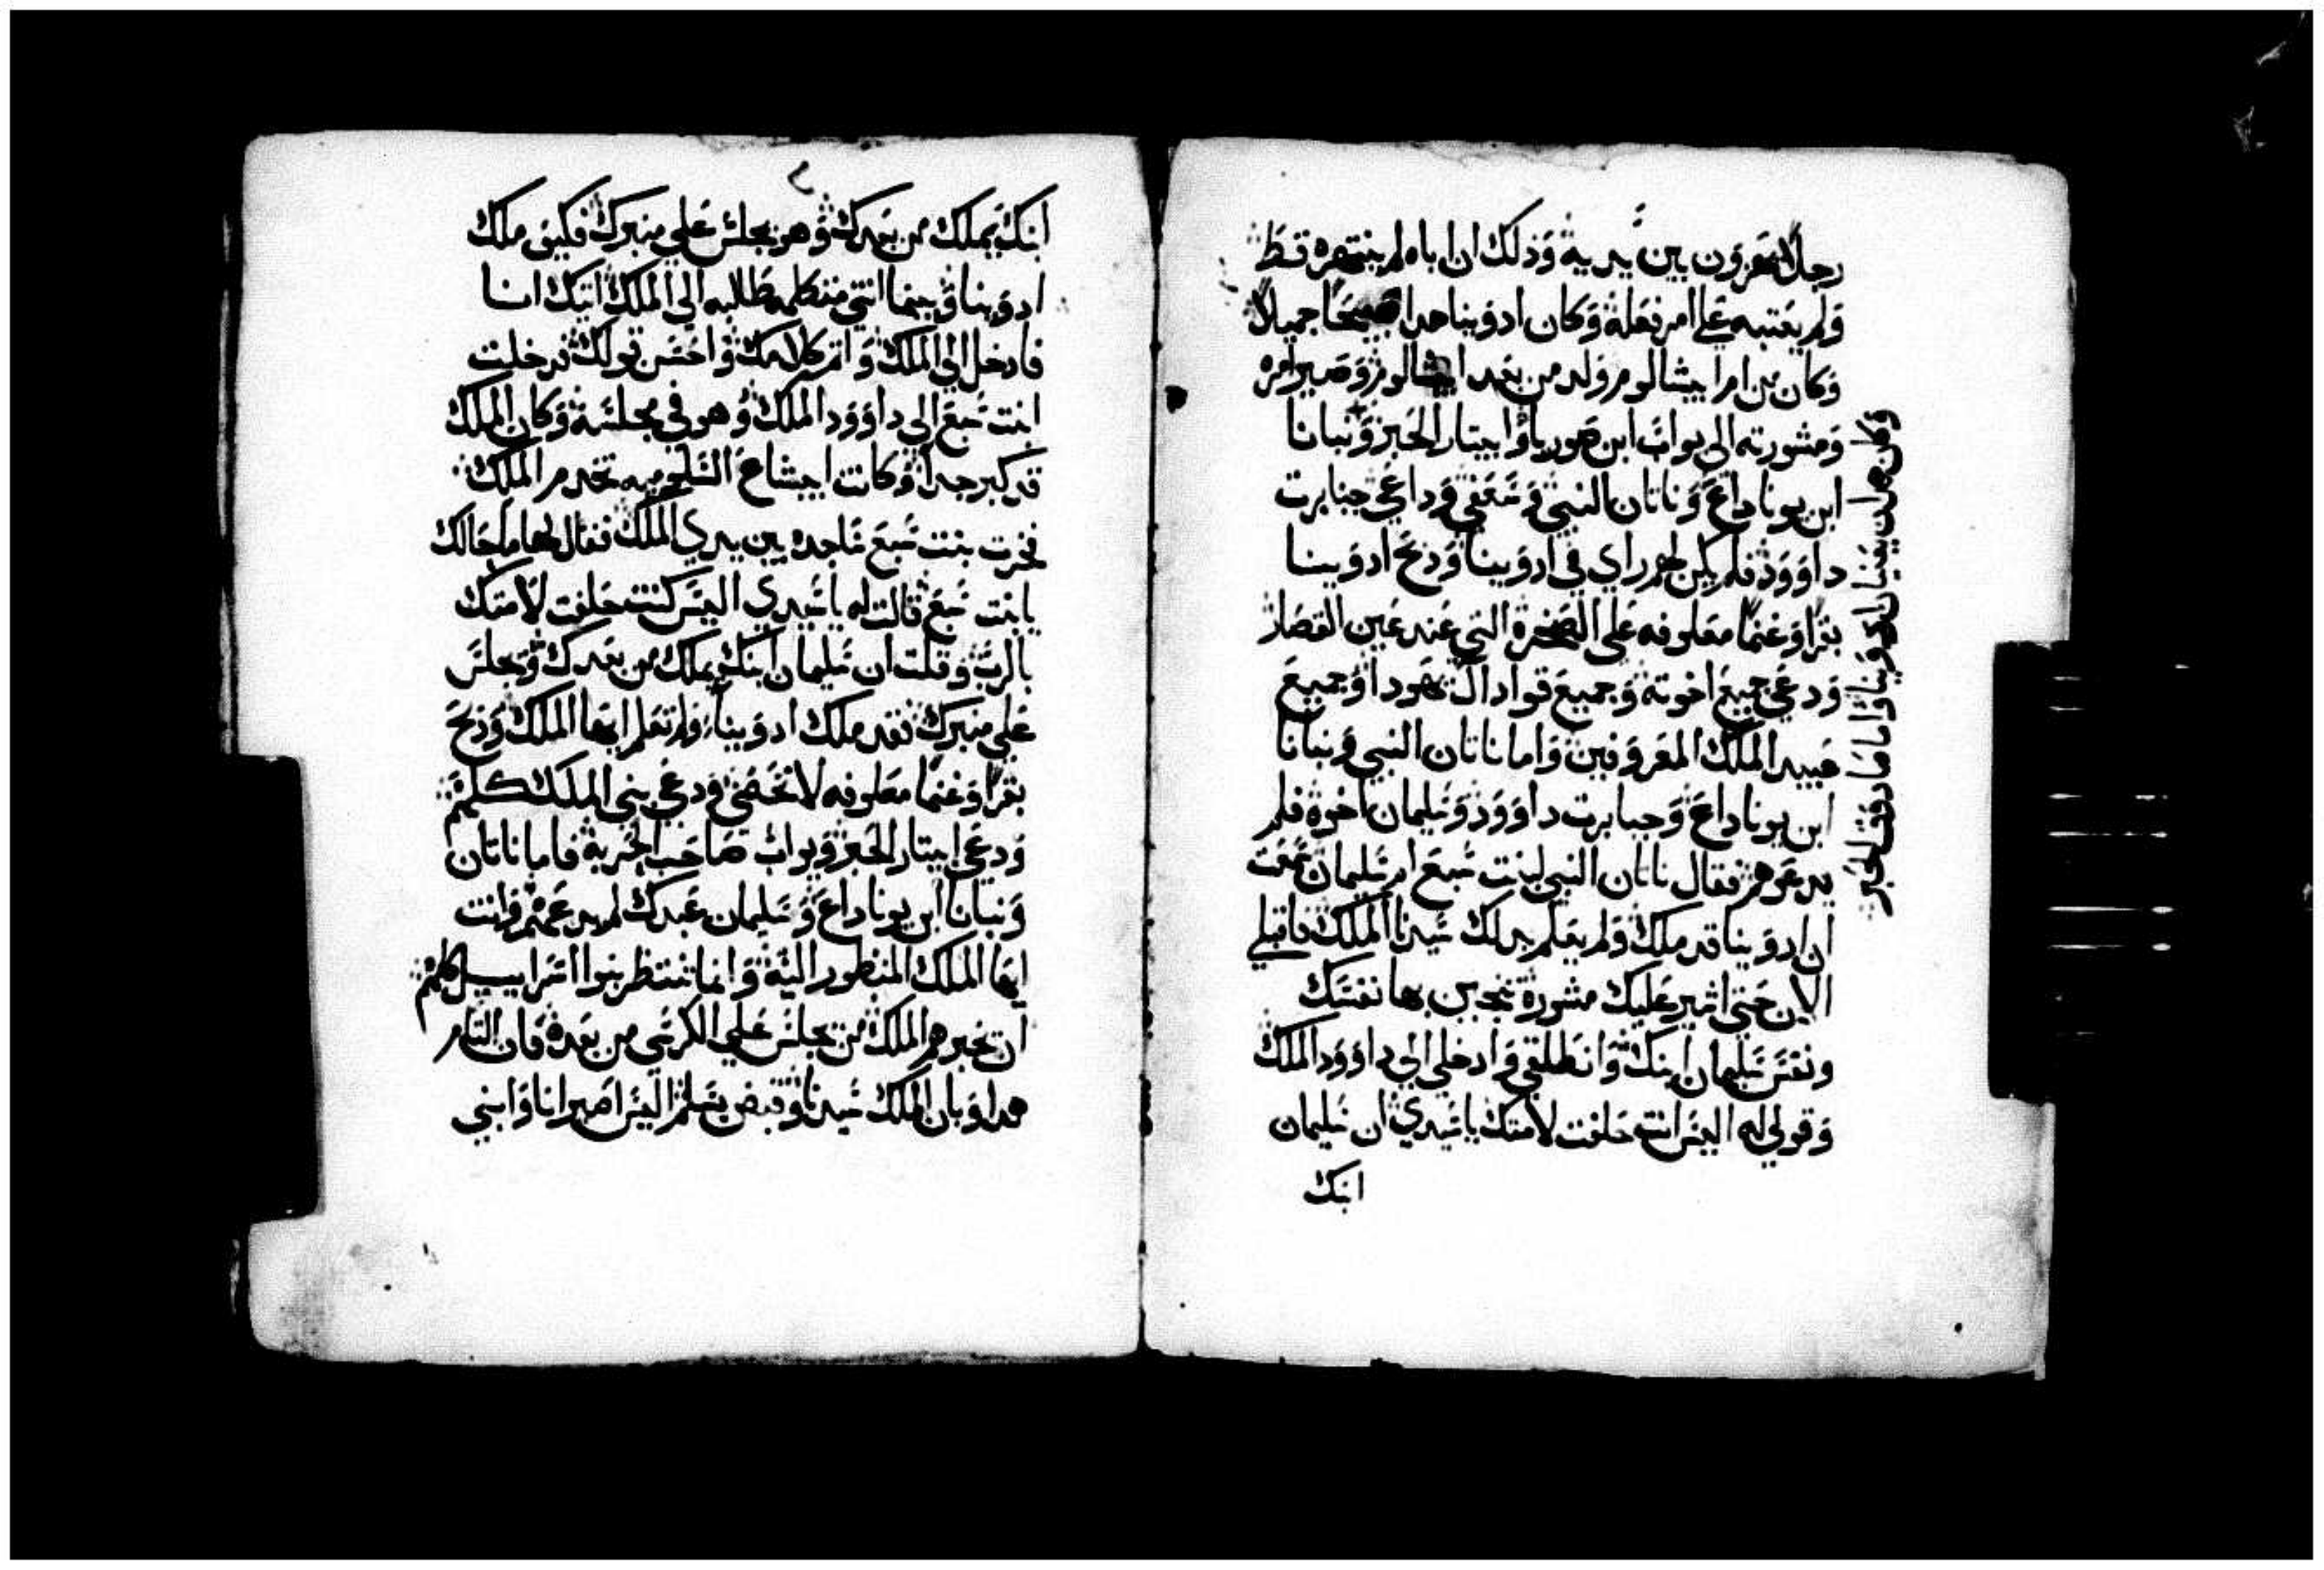 رجلا يغزون بين يديه وذلك ان اباه لم ينتهره قط
ولم يعتبه على امر فعله وكان ادوينا هدا صبيحا جميلا
وكان من امر ابيشالوم ولد من بعد ابيشالوم وصير امره
ومشورته الى يواب ابن صوريا وابيتار الحبر ونبانا
ابن يوناداع وناتان النبي وشمعي وداعي جبابرت
داوود فلم يكن لهم راي في ادوينا ودبح ادوينا
بقرا وغنما معلوفه على الصخره التي عند عين القصار
ودعي جميع اخوته وجميع قواد ال يهودا وجميع
عبيد الملك المعروفين واما ناتان النبي ونبانا
ابن يوناداع وجبابرت داوود وسليمان اخوه فلم
يدعوهم فقال ناتان النبي لبنت سبع ام سليمان سمعت
ان ادوينا قد ملك ولم يعلم بدلك سيدنا الملك فاقبلي
الان حتى اشير عليك مشورة تنجين بها نفسك
ونفس سليمان ابنك وانطلقي وادخلي الي داوود الملك
وقولي له اليس انت حلفت لامتك يا سيدي ان سليمان
ابنك
ابنك يملك من بعدك وهو يجلس علي منبرك فكيف ملك
ادوينا وبينما انتي متكلمه طالبه الي الملك اتيك انا
فادخل الي الملك واتم كلامك واحسن قولك فدخلت
ابنت سبع الي داوود الملك وهو في مجلسه وكان الملك
قد كبر جدا وكانت ابيشاع الشلوميه تخدم الملك
فخرت بنت سبع ساجده بين يدي الملك فقال لها ما حالك
يا بنت سبع قالت له يا سيدي اليس كنت حلفت لامتك
بالرب وقلت ان سليمان ابنك يملك من بعدك ويجلس
علي منبرك فقد ملك ادوينا ولم تعلم ايها الملك ودبح
بقرا وغنما معلوفه لا تحصي ودعي بني الملك كلهم
ودعي ابيتار الحبر ويواب صاحب الحربه فاما ناتان
ونبانا ابن يوناداع وسليمان عبدك لم يدعهم وانت
ايها الملك المنظور اليه وانما تنتظر بنوا اسراييل كلهم
ان تخبرهم الملك من يجلس علي الكرسي من بعده فان التام
هدا وبان الملك سيدنا وقبض بسلم اليس اصير انا وابني